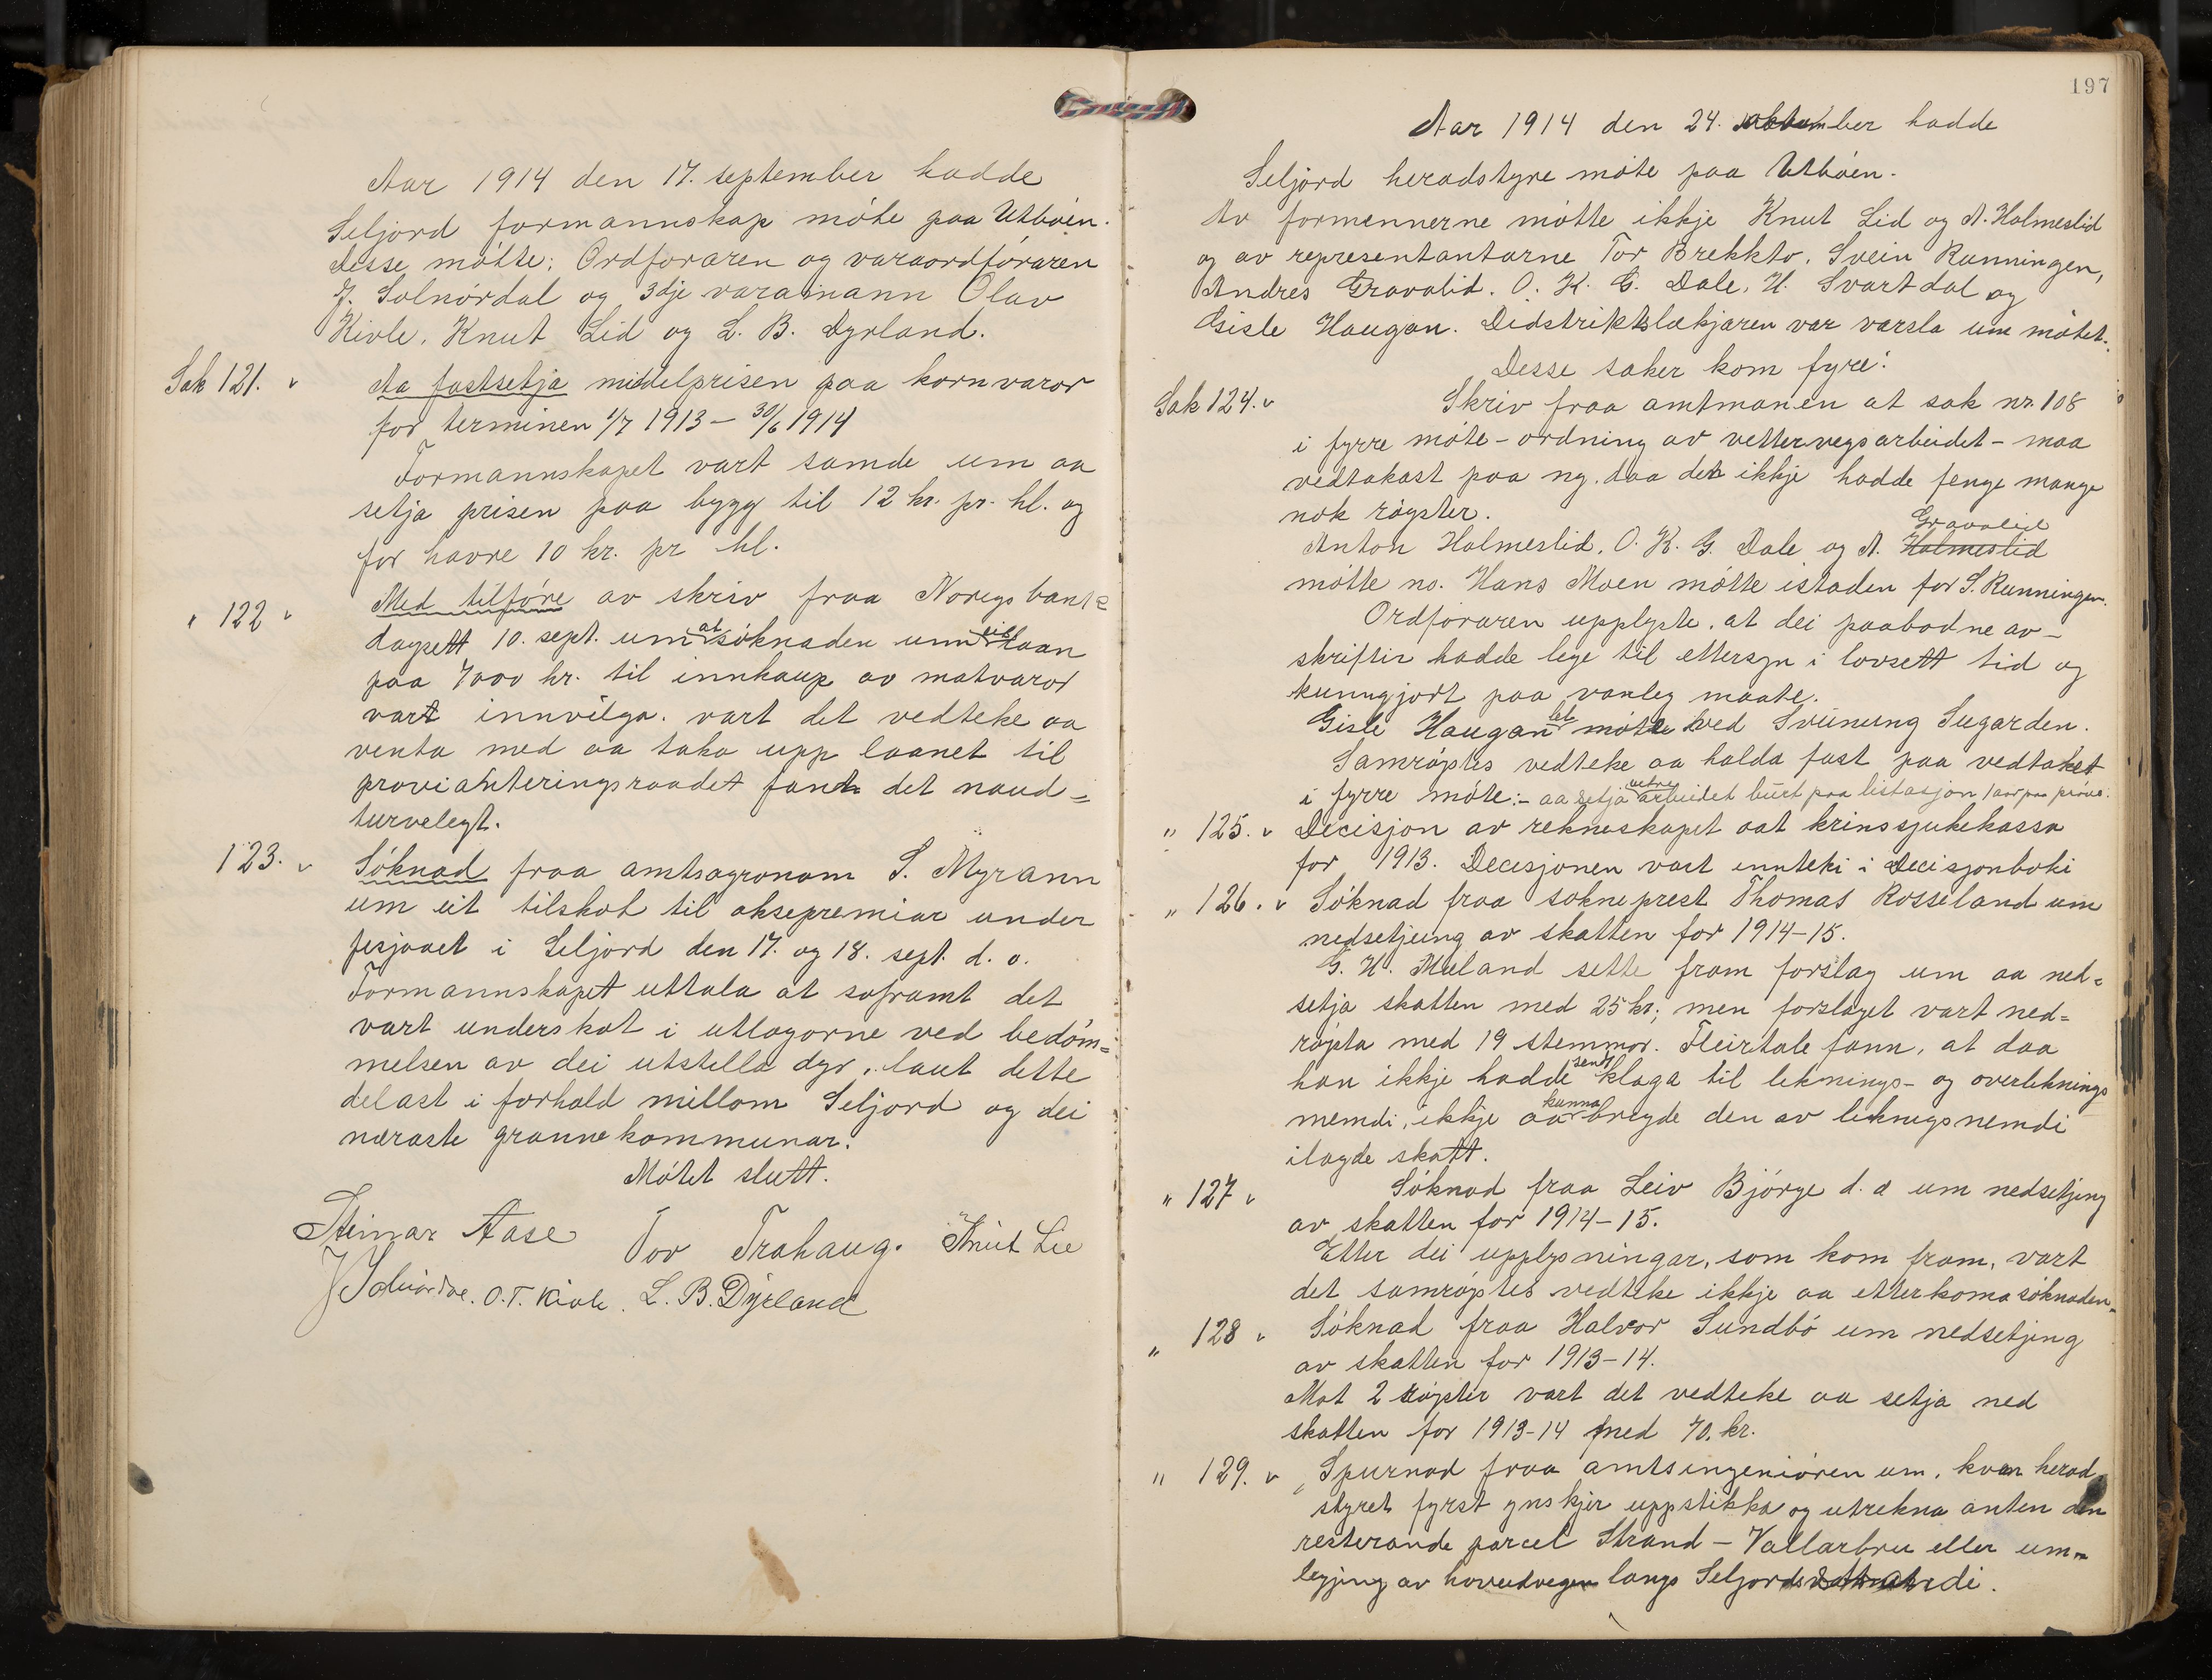 Aar 1914 den 17. september hadde
Seljord formannskap möte paa Utböen.
Desse mötte: Ordföraren og varaordföraren
J. Solnördal og 3dje varamann Olav
Kivle, Knut Lid og L. B. Dyrland.
Sak 121. Aa fastsetja middelprisen paa kornvaror
for terminen 1/7 1913 – 30/6 1914
Formannskapet vart samde um aa
setja prisen paa bygg til 12 kr. pr. hl. og
for havre 10 kr. pr hl.
" 122 Med tilföre av skriv fraa Noregs bank
dagsett 10. sept. um at söknaden um eit laan
paa 7000 kr. til innkaup av matvaror
vart innvilga. vart det vedteke aa
venta med aa taka upp laanet til
provianteringsraadet fann det naud=
turvelegt.
123. Söknad fraa amtsagronom S. Myrann
um eit tilskot til oksepremiar under
fesjaaet i Seljord den 17. og 18. sept. d. a.
Formannskapet uttala at soframt det
vart underskot i utlagorne ved bedöm=
melsen av dei utstella dyr, laut dette
delast i forhold millom Seljord og dei
næraste grannekommunar.
Mötet slutt.
Steinar Aase Tov Trahaug. Knut Lie
J Solnördal. O. T. Kivle. L. B. Dyrland
197
Aar 1914 den 24. oktober hadde
Seljord heradstyre möte paa Utböen.
Av formennerne mötte ikkje Knut Lid og A. Holmeslid
og av representantarne Tor Brekkto, Svein Runningen,
Andres Gravalid. O. K. G. Dale, H. Svartdal og
Gisle Haugan. Didstriktslækjaren var varsla um mötet.
Desse saker kom fyre:
Sak 124. Skriv fraa amtmanen at sak nr. 108
i fyrre möte – ordning av vettervegsarbeidet – maa
vedtakast paa ny. daa det ikkje hadde fenge mange
nok röyster.
Anton Holmeslid, O. K. G. Dale og A. Holmeslid Gravalid
mötte no. Hans Moen mötte istaden for S. Runningen.
Ordföraren upplyste, at dei paabodne av-
skriftir hadde lege til ettersyn i lovsett tid og
kunngjort paa vanleg maate.
Gisle Haugan let möte ved Sveinung Sugarden.
Samröystes vedteke aa halda fast paa vedtaket
i fyrre möte: – aa setja vetrearbeidet burt paa listasjon 1 aar paa pröve.
" 125. Decisjon av rekneskapet aat krinssjukekassa
for 1913. Decisjonen vart innteki i Decisjonboki
" 126. Söknad fraa sokneprest Thomas Rosseland um
nedsetjeing av skatten for 1914–15.
G. H. Mæland sette fram forslag um aa ned=
setja skatten med 25 kr; men forslaget vart ned=
röysta med 19 stemmor. Fleirtale fann, at daa
han ikkje hadde sendt klaga til liknings- og overliknings
nemdi, ikkje aa kunna brigde den av liknigsnemdi
ilagde skatt.
" 127 Söknad fraa Leiv Björge d. a um nedsetjing
av skatten for 1914–15.
Etter dei upplysningar, som kom fram, vart
det samröystes vedteke ikkje aa etterkoma söknaden.
" 128 Söknad fraa Halvor Sundbö um nedsetjing
av skatten for 1913–14.
Mot 2 röyster vart det vedteke aa setja ned
skatten for 1913–14 med 70. kr.
" 129. Spurnad fraa amtsingeniören um, kva herad
styret fyrst ynskjer uppstikka og utrekna anten den
resterande parcel Strand – Vallarbru eller um=
legjing av hovudvegen langs Seljords